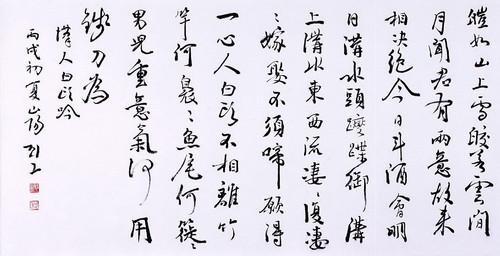 皚如山上雪皎若雲間
月聞君有兩意故來
相決絕今日斗酒會明
日溝水頭躞蹀御溝
上溝水東西流淒〻復淒
〻嫁娶不須啼願得
一心人白頭不相離竹
竿何裊〻魚尾何簁〻
男兒重意氣何用
錢刀為
漢人白頭吟
丙戌初夏山陽